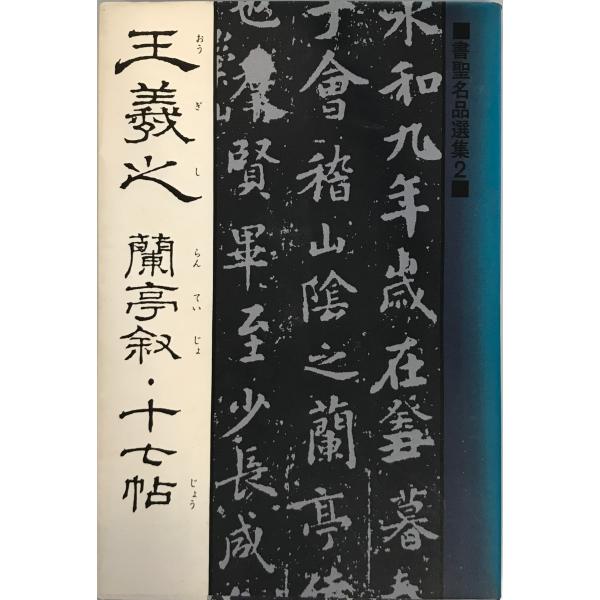 ■書聖名品選集2■
永和九年歲在癸丑暮春
于會稽山陰之蘭亭脩
也羣賢畢至少長咸
王羲之 蘭亭叙・十七帖
おう ぎ し らん てい じょ じょう